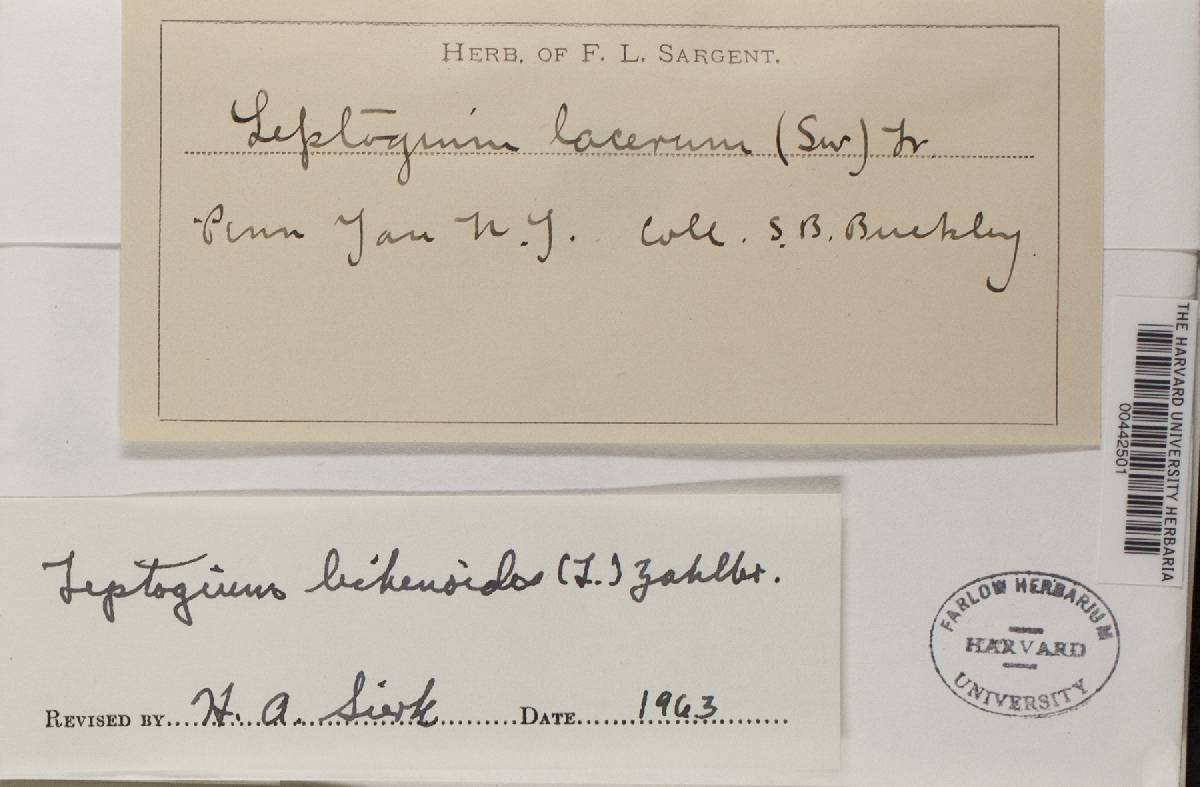 HERB. OF F. L. SARGENT.
Leptogium lacerum (Sw) Fr.
Penn Yan N.Y. Coll. S. B. Buckley
THE HARVARD UNIVERSITY HERBARIA
00442501
Leptogium lichenoides (L.) Zahlbr.
REVISED BY....H. A. Sierk.........DATE.......1963.......
FARLOW HERBARIUM
HARVARD
UNIVERSITY